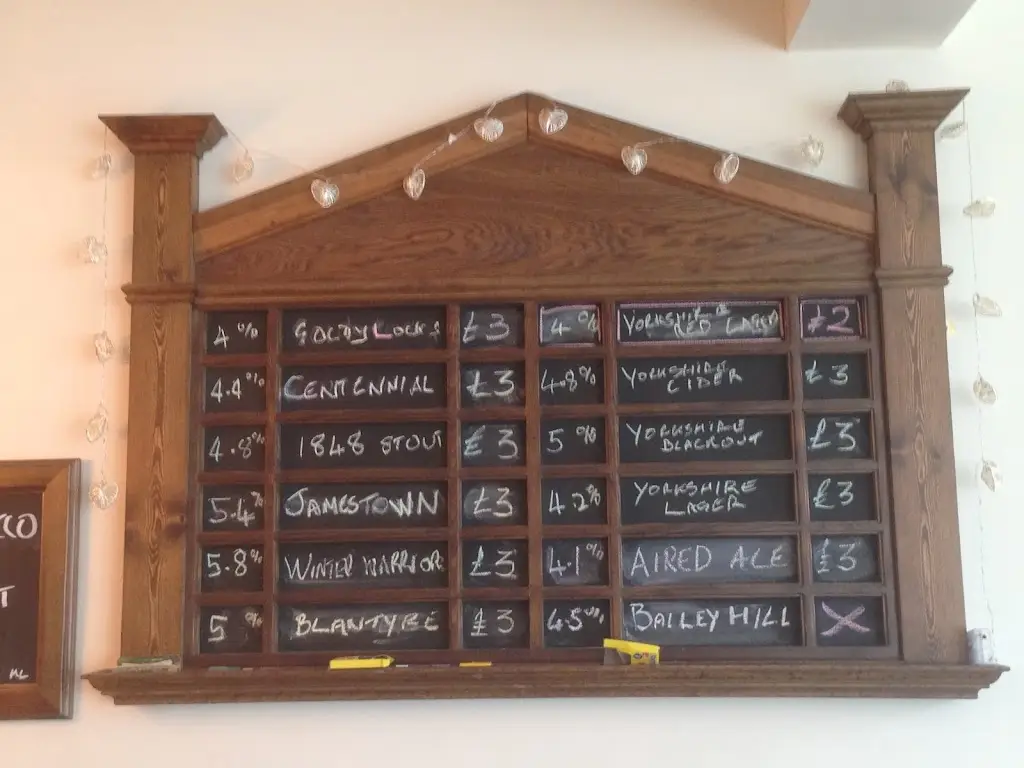 4% GOLDYLOCKS £3 4% YORKSHIRE RED LAGER £2
4.4% CENTENNIAL £3 4.8% YORKSHIRE CIDER £3
4.8% 1848 STOUT £3 5% YORKSHIRE BLACKOUT £3
5.4% JAMESTOWN £3 4.2% YORKSHIRE LAGER £3
5.8% WINTER WARRIOR £3 4.1% AIRED ALE £3
5% BLANTYRE £3 4.5% BAILEY HILL X
CO
T
ML